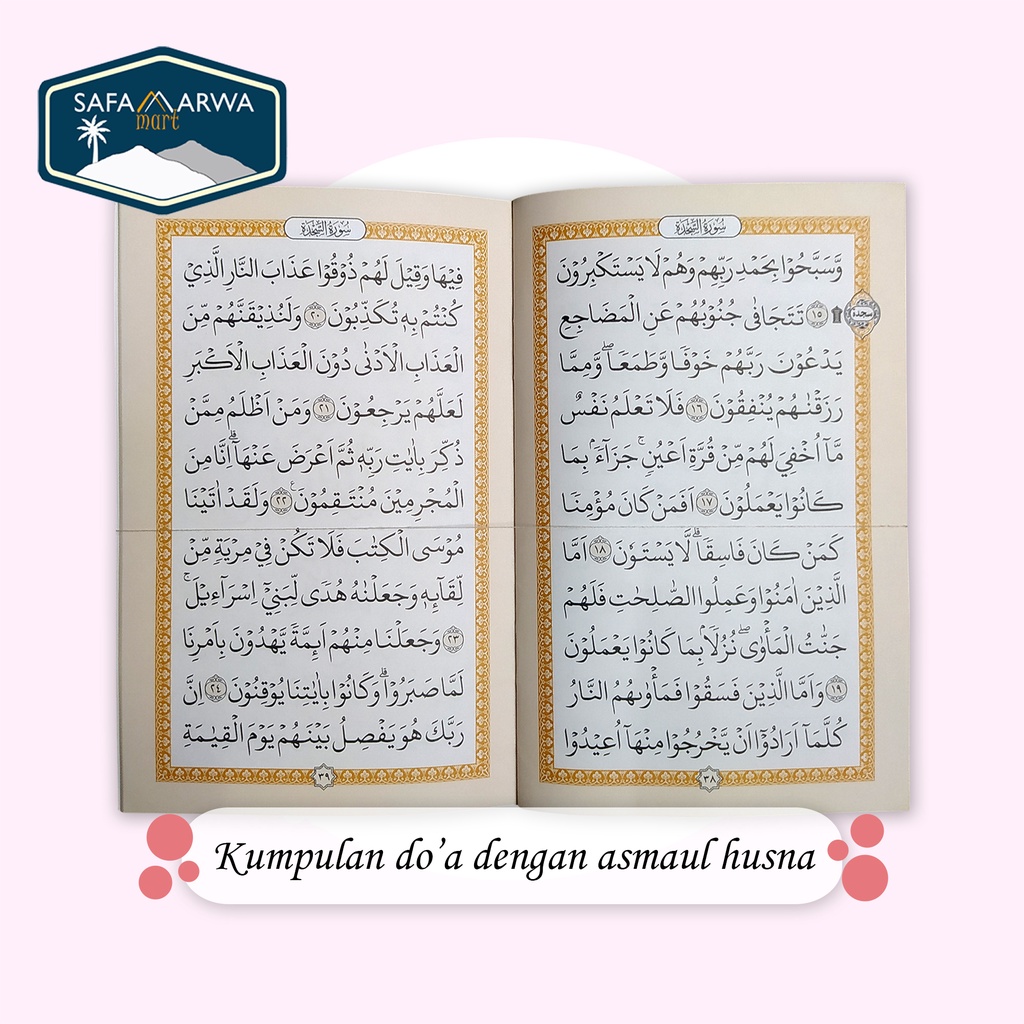 SAFA MARWA
mart
سُوْرَةُ السَّجْدَةِ
وَّسَبَّحُوْا بِحَمْدِ رَبِّهِمْ وَهُمْ لَا يَسْتَكْبِرُوْنَ
۩ ١٥ تَتَجَافٰى جُنُوْبُهُمْ عَنِ الْمَضَاجِعِ
سجدة
يَدْعُوْنَ رَبَّهُمْ خَوْفًا وَّطَمَعًاۖ وَّمِمَّا
رَزَقْنٰهُمْ يُنْفِقُوْنَ ١٦ فَلَا تَعْلَمُ نَفْسٌ
مَّآ اُخْفِيَ لَهُمْ مِّنْ قُرَّةِ اَعْيُنٍۚ جَزَاۤءًۢ بِمَا
كَانُوْا يَعْمَلُوْنَ ١٧ اَفَمَنْ كَانَ مُؤْمِنًا
كَمَنْ كَانَ فَاسِقًاۗ لَا يَسْتَوٗنَ ١٨ اَمَّا
الَّذِيْنَ اٰمَنُوْا وَعَمِلُوا الصّٰلِحٰتِ فَلَهُمْ
جَنّٰتُ الْمَأْوٰىۖ نُزُلًاۢ بِمَا كَانُوْا يَعْمَلُوْنَ
١٩ وَاَمَّا الَّذِيْنَ فَسَقُوْا فَمَأْوٰىهُمُ النَّارُ
كُلَّمَآ اَرَادُوْٓا اَنْ يَّخْرُجُوْا مِنْهَآ اُعِيْدُوْا
٣٨
سُوْرَةُ السَّجْدَةِ
فِيْهَا وَقِيْلَ لَهُمْ ذُوْقُوْا عَذَابَ النَّارِ الَّذِيْ
كُنْتُمْ بِهٖ تُكَذِّبُوْنَ ٢٠ وَلَنُذِيْقَنَّهُمْ مِّنَ
الْعَذَابِ الْاَدْنٰى دُوْنَ الْعَذَابِ الْاَكْبَرِ
لَعَلَّهُمْ يَرْجِعُوْنَ ٢١ وَمَنْ اَظْلَمُ مِمَّنْ
ذُكِّرَ بِاٰيٰتِ رَبِّهٖ ثُمَّ اَعْرَضَ عَنْهَاۗ اِنَّا مِنَ
الْمُجْرِمِيْنَ مُنْتَقِمُوْنَ ࣖ ٢٢ وَلَقَدْ اٰتَيْنَا
مُوْسَى الْكِتٰبَ فَلَا تَكُنْ فِيْ مِرْيَةٍ مِّنْ
لِّقَاۤىِٕهٖ وَجَعَلْنٰهُ هُدًى لِّبَنِيْٓ اِسْرَاۤءِيْلَۚ
٢٣ وَجَعَلْنَا مِنْهُمْ اَىِٕمَّةً يَّهْدُوْنَ بِاَمْرِنَا
لَمَّا صَبَرُوْاۗ وَكَانُوْا بِاٰيٰتِنَا يُوْقِنُوْنَ ٢٤ اِنَّ
رَبَّكَ هُوَ يَفْصِلُ بَيْنَهُمْ يَوْمَ الْقِيٰمَةِ
٣٩
Kumpulan do'a dengan asmaul husna